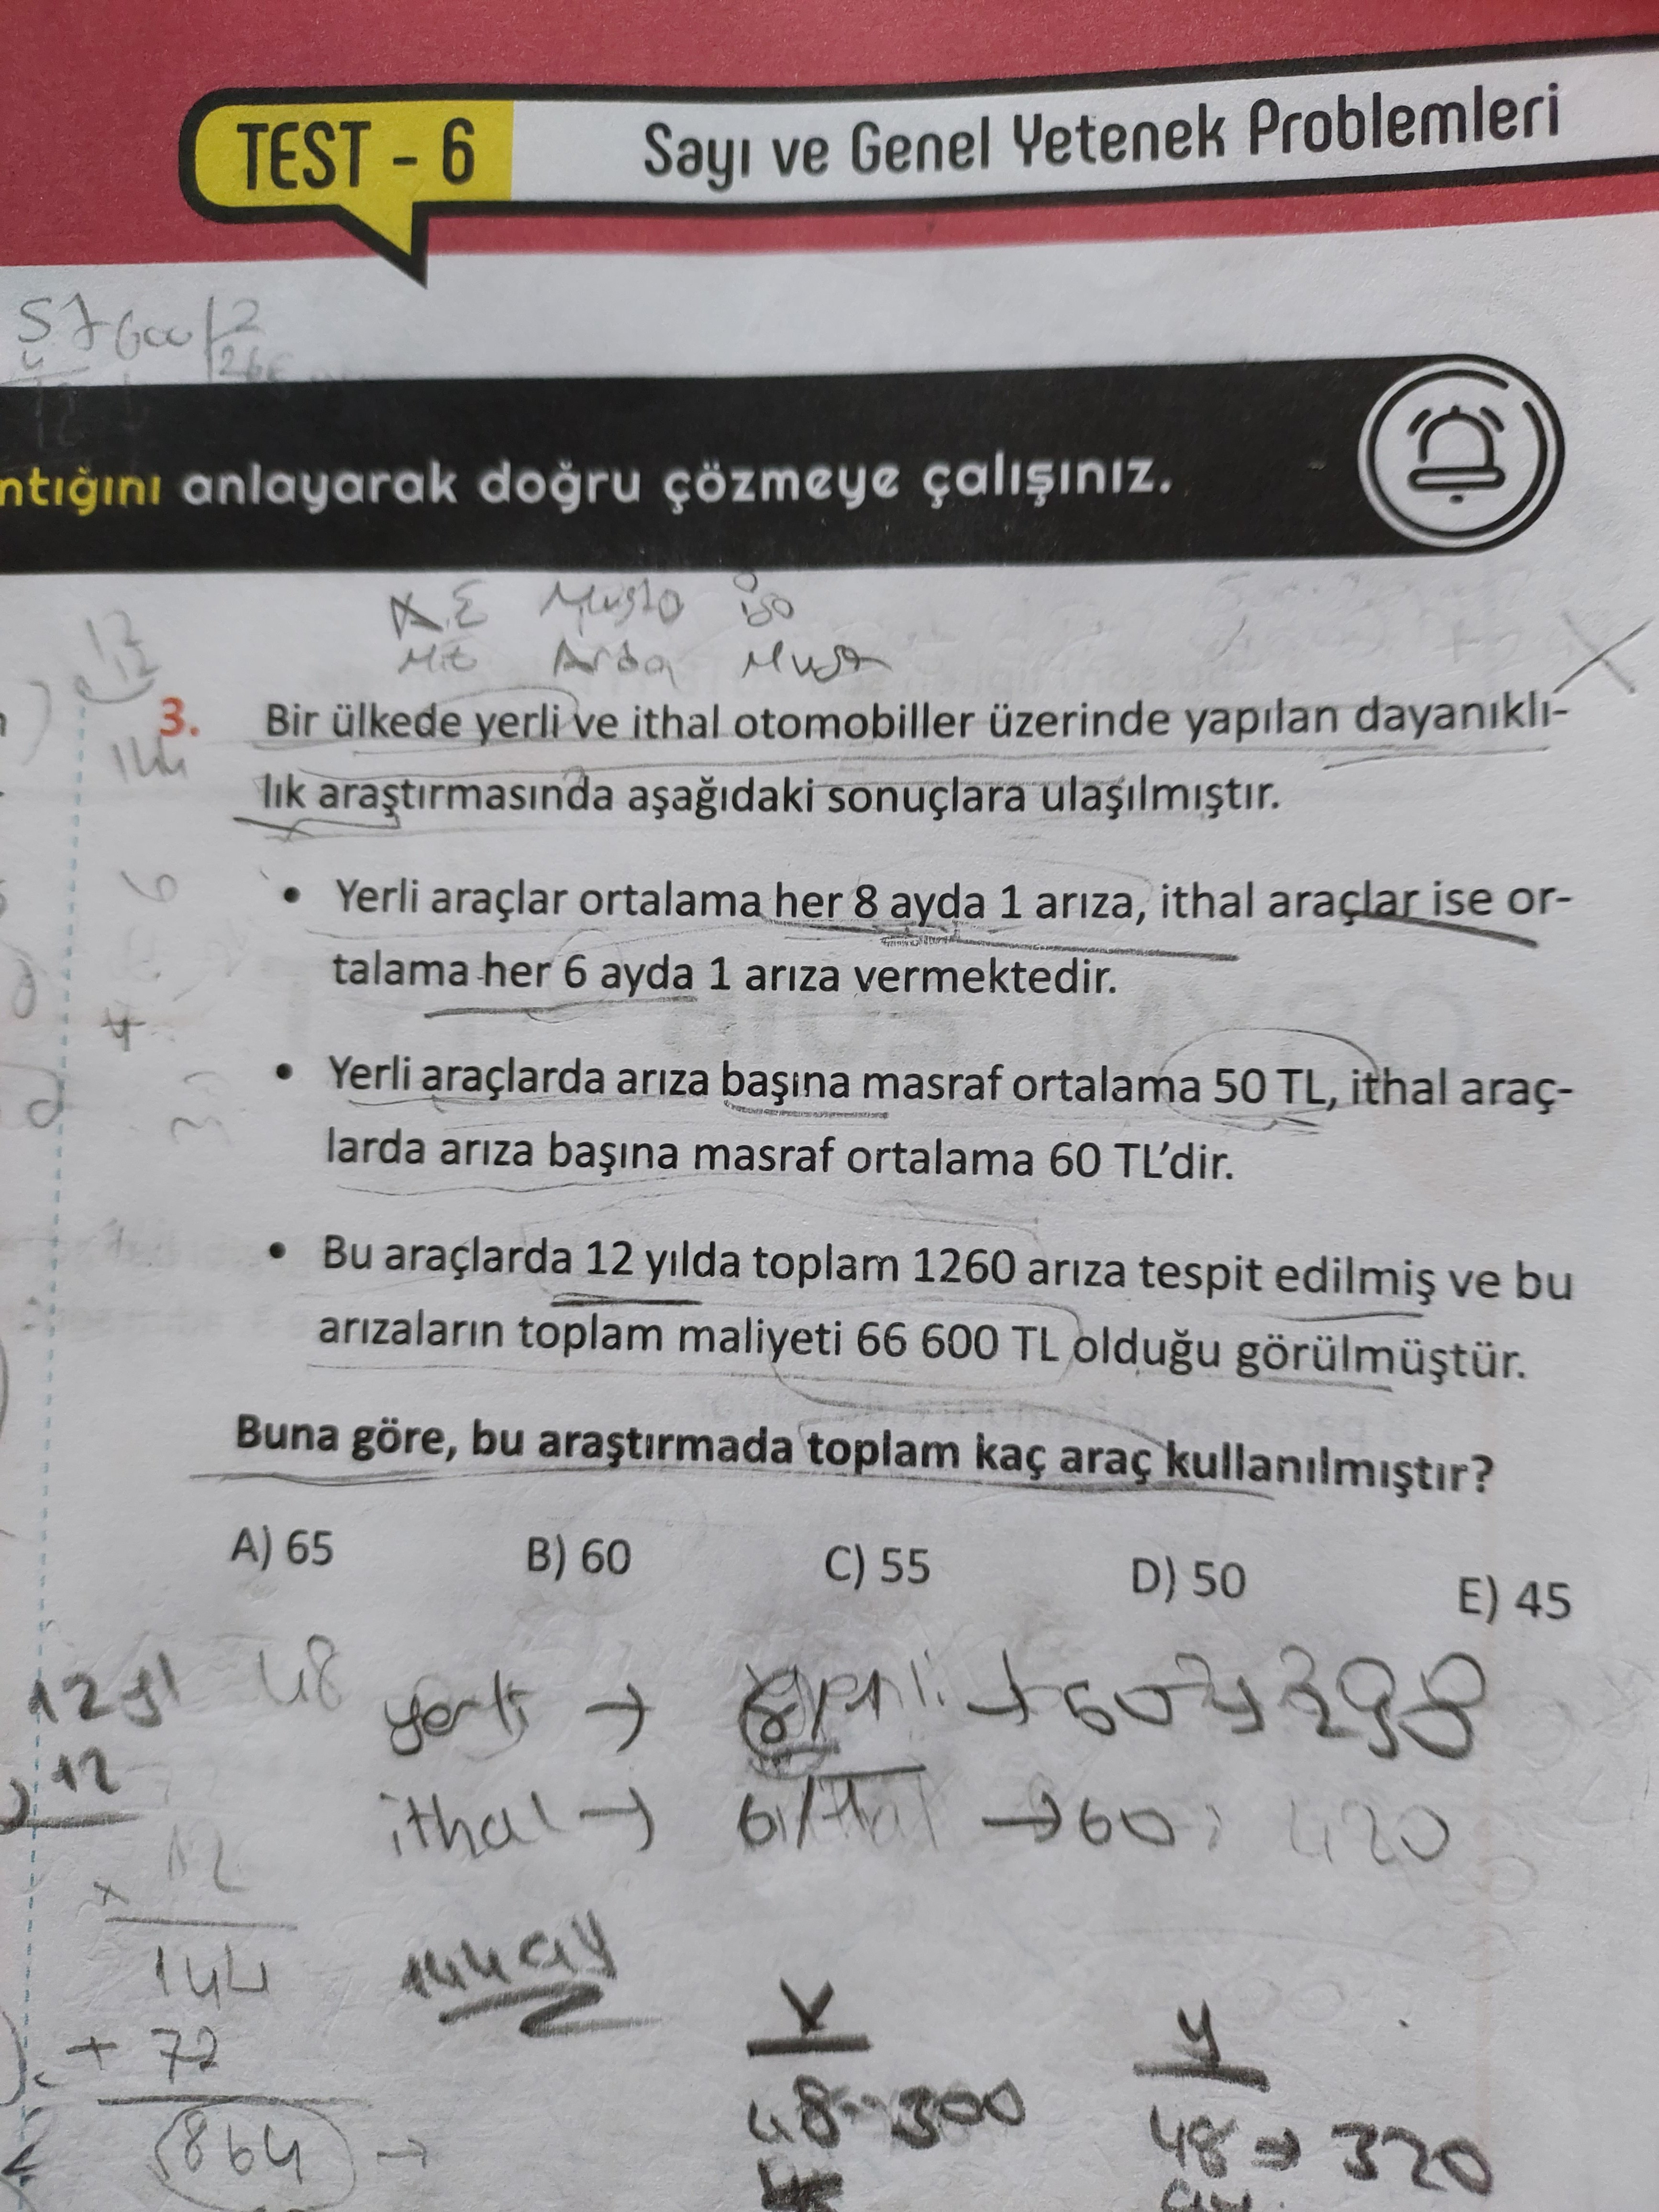 TEST - 6 Sayı ve Genel Yetenek Problemleri
57600 2
ntığını anlayarak doğru çözmeye çalışınız.
A.E Musto iso
Arda
12
12
144
3. Bir ülkede yerli ve ithal otomobiller üzerinde yapılan dayanıklı-
lık araştırmasında aşağıdaki sonuçlara ulaşılmıştır.
• Yerli araçlar ortalama her 8 ayda 1 arıza, ithal araçlar ise or-
talama her 6 ayda 1 arıza vermektedir.
• Yerli araçlarda arıza başına masraf ortalama 50 TL, ithal araç-
larda arıza başına masraf ortalama 60 TL'dir.
• Bu araçlarda 12 yılda toplam 1260 arıza tespit edilmiş ve bu
arızaların toplam maliyeti 66 600 TL olduğu görülmüştür.
Buna göre, bu araştırmada toplam kaç araç kullanılmıştır?
A) 65 B) 60 C) 55 D) 50 E) 45
12 yıl 48 yerli →
12
ithal → → 60 420
x 12
144 144 ay
+ 72
864 →
x y
48 300 48 → 320